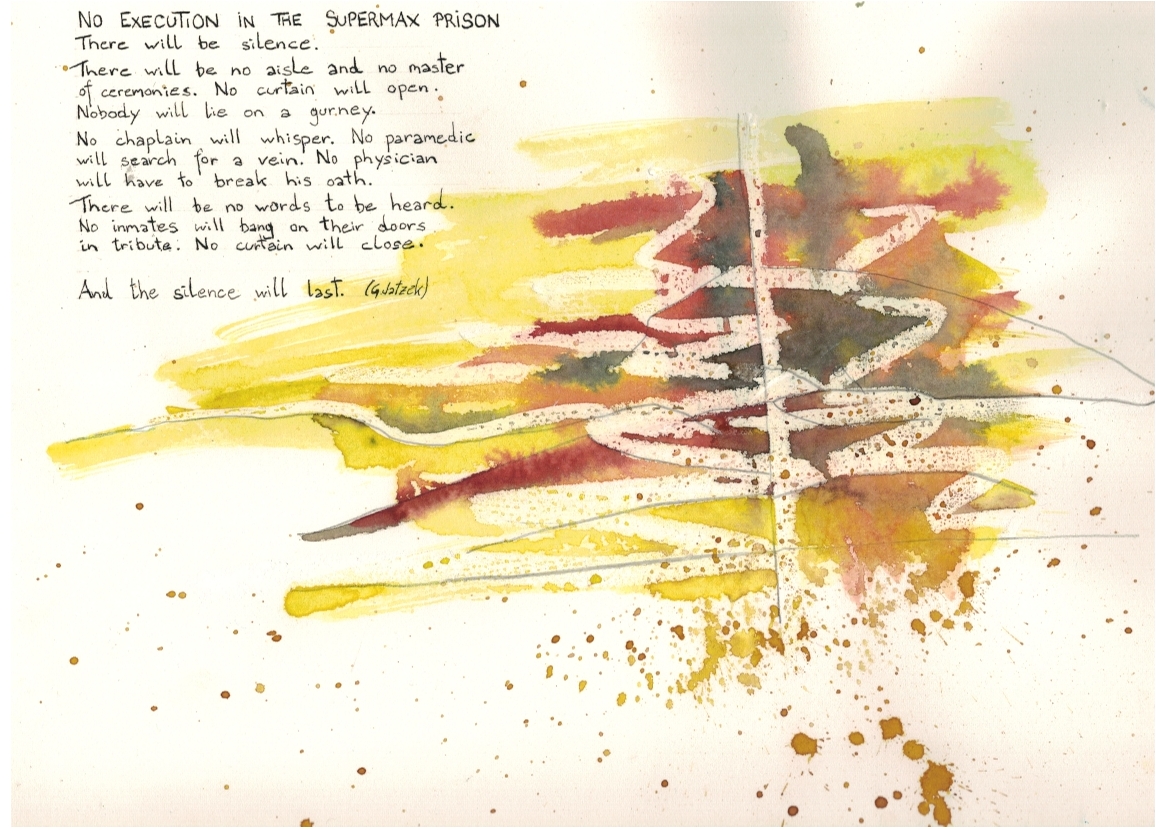 NO EXECUTION IN THE SUPERMAX PRISON
There will be silence.
There will be no aisle and no master
of ceremonies. No curtain will open.
Nobody will lie on a gurney.
No chaplain will whisper. No paramedic
will search for a vein. No physician
will have to break his oath.
There will be no words to be heard.
No inmates will bang on their doors
in tribute. No curtain will close.
And the silence will last. (G.Jatzek)